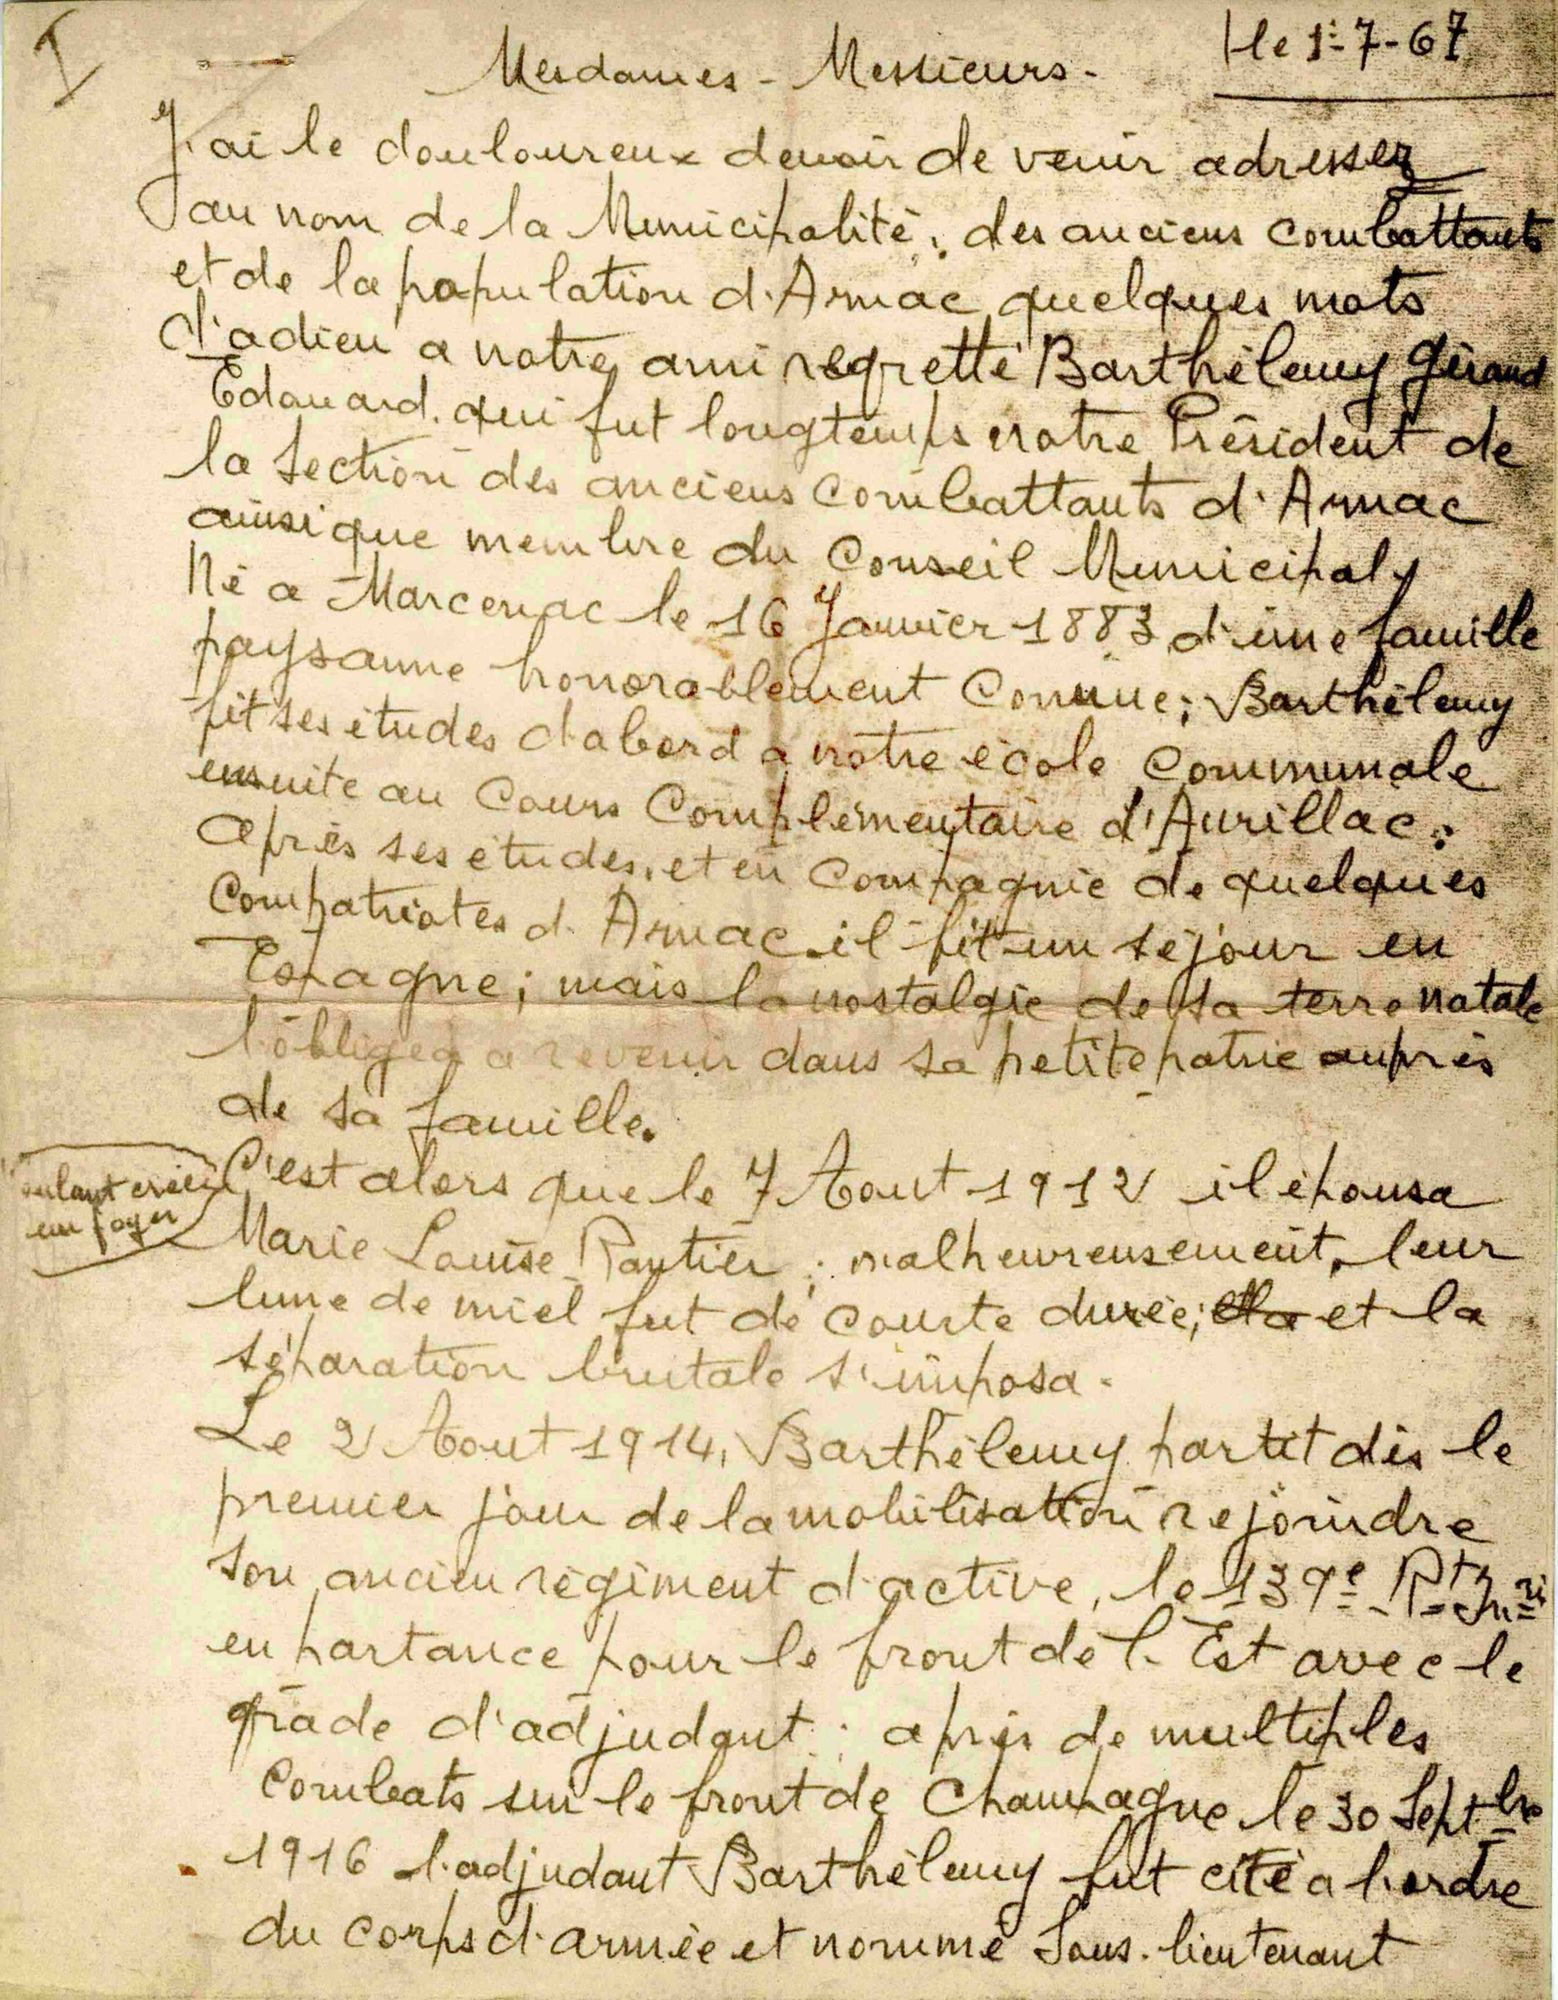 I
le 1-7-67
Mesdames - Messieurs -
J'ai le douloureux devoir de venir adresser
au nom de la Municipalité, des anciens combattants
et de la population d'Arnac quelques mots
d'adieu a notre ami regretté Barthélemy Géraud
Edouard. qui fut longtemps notre Président de
la section des anciens combattants d'Arnac
ainsi que membre du Conseil Municipal,
Né a Marcenac le 16 Janvier 1883 d'une famille
paysanne honorablement connue; Barthélemy
fit ses études d'abord a notre école communale
ensuite au Cours Complémentaire d'Aurillac:
après ses études, et en compagnie de quelques
compatriotes d'Arnac il fit un séjour en
Espagne; mais la nostalgie de sa terre natale
l'obligea a revenir dans sa petite patrie auprès
de sa famille.
voulant créer
un foyer
C'est alors que le 7 Aout 1912 il épousa
Marie Louise ; malheureusement, leur
lune de miel fut de courte durée; et la
séparation brutale s'imposa -
Le 2 Aout 1914, Barthélemy partit dès le
premier jour de la mobilisation rejoindre
son ancien régiment d'active, le 139e Rt
en partance pour le front de l'Est avec le
grade d'adjudant ; après de multiples
combats sur le front de Champagne le 30 Septbre
1916 l'adjudant Barthélemy fut cité a l'ordre
du corps d'armée et nommé Sous-lieutenant